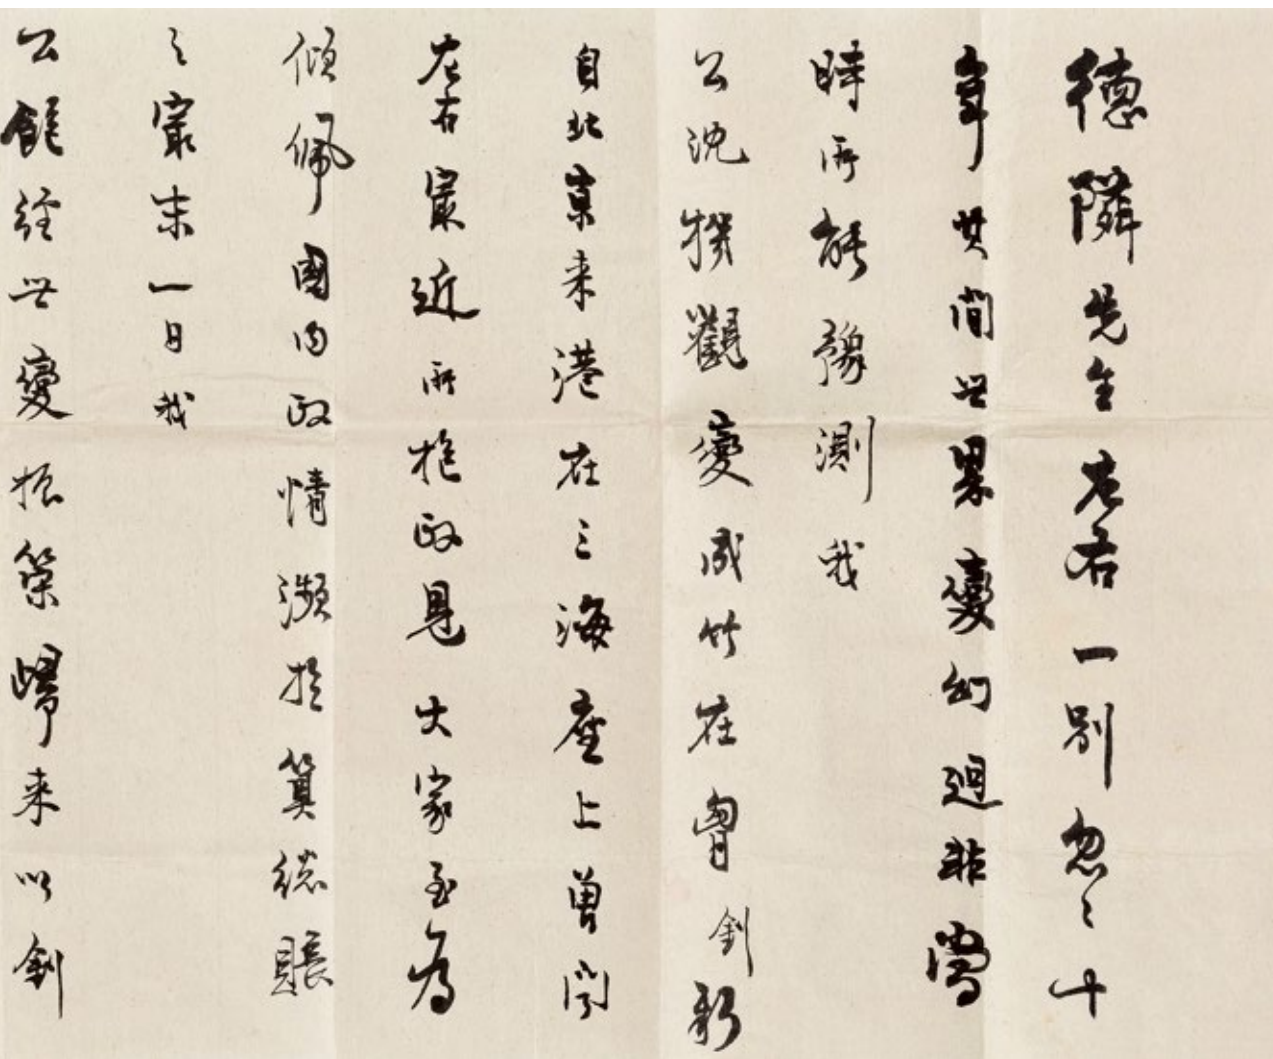 德隣先生左右一別忽々十
年其間世界變幻迥非當
時所能豫測我
公沈機觀變成竹在胸釗新
自北京來港在三海座上曾聞
左右最近所抱政見大家至為
傾佩國內政情瀕於算總賬
之最末一日我
公飽經世變振策歸來以釗